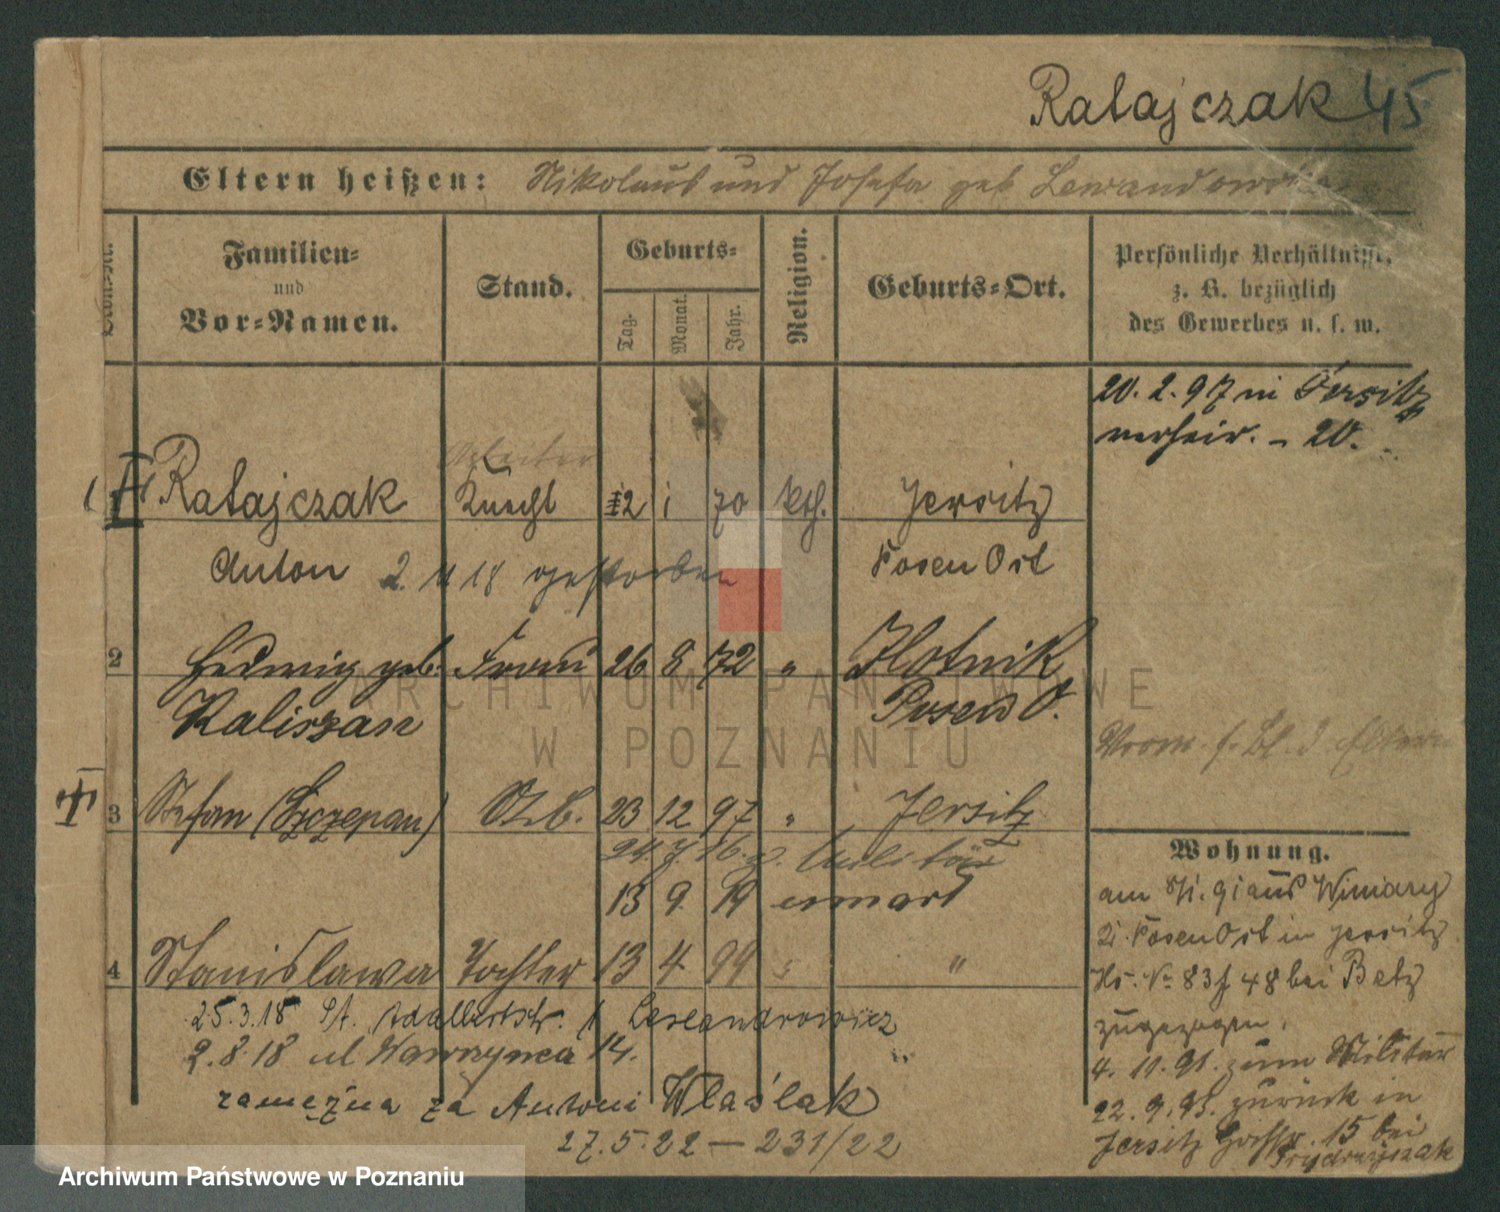 Ratajczak 45
Eltern heißen: Nikolaus und Josefa geb Lewandowska
Familien- und Vor-Namen.
Stand.
Geburts-
Tag. Monat. Jahr.
Religion.
Geburts-Ort.
Persönliche Verhältnisse,
z. B. bezüglich
des Gewerbes u. s. w.
20. 2. 97 in Jersitz
verheir. - 20.
Arbeiter
1 Ratajczak Knecht 12 1 70 kth. Jersitz
Anton 2. 11 18 gestorben Posen Ost
2 Hedwig geb. Frau 26 8 72 " Zlotnik
Kaliszan Posen O.
3 Stefan (Szczepan) 23 12 97 " Jersitz
24. 7. 16. z. Militär
13 9. 19
4 Stanislawa Tochter 13 4 99 "
25.3.18 St. Adalbertstr.
2.8.18 ul Wawrzynca 14.
zamężna za Antoni Wlaślak
27.5.22 — 231/22
Wohnung.
am 91 aus Winiary
Posen Ost in Jersitz
Hs. No 83f 48 bei Betz
zugezogen.
4. 11. 91. zum Militär
22. 9. 93. zurück in
Jersitz 15 bei
Frydrzyszak
ARCHIWUM PAŃSTWOWE
W POZNANIU
Archiwum Państwowe w Poznaniu